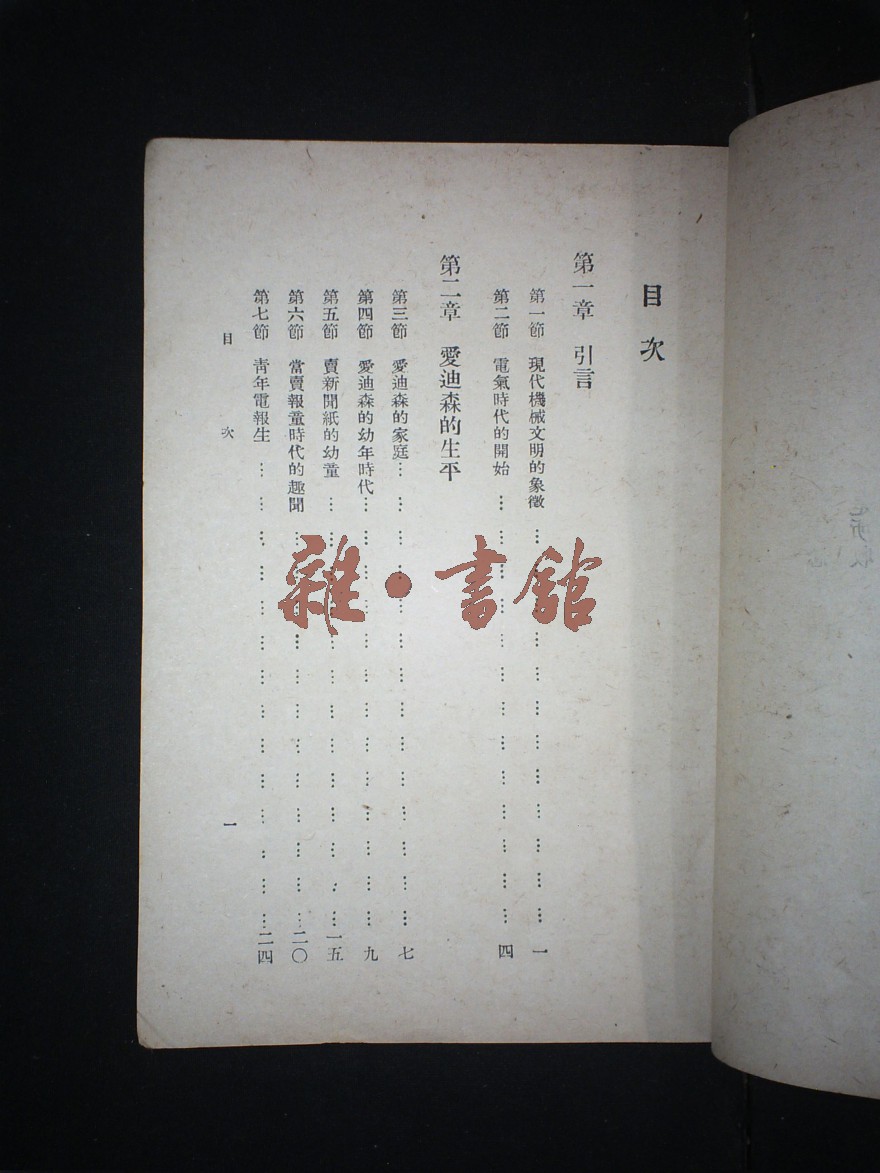 目次
第一章　引言
第一節　現代機械文明的象徵………………………………一
第二節　電氣時代的開始………………………………四
第二章　愛迪森的生平
第三節　愛迪森的家庭………………………………七
第四節　愛迪森的幼年時代………………………………九
第五節　賣新聞紙的幼童………………………………一五
第六節　當賣報童時代的趣聞………………………………二〇
第七節　靑年電報生………………………………二四
目　次　一
雜・書館